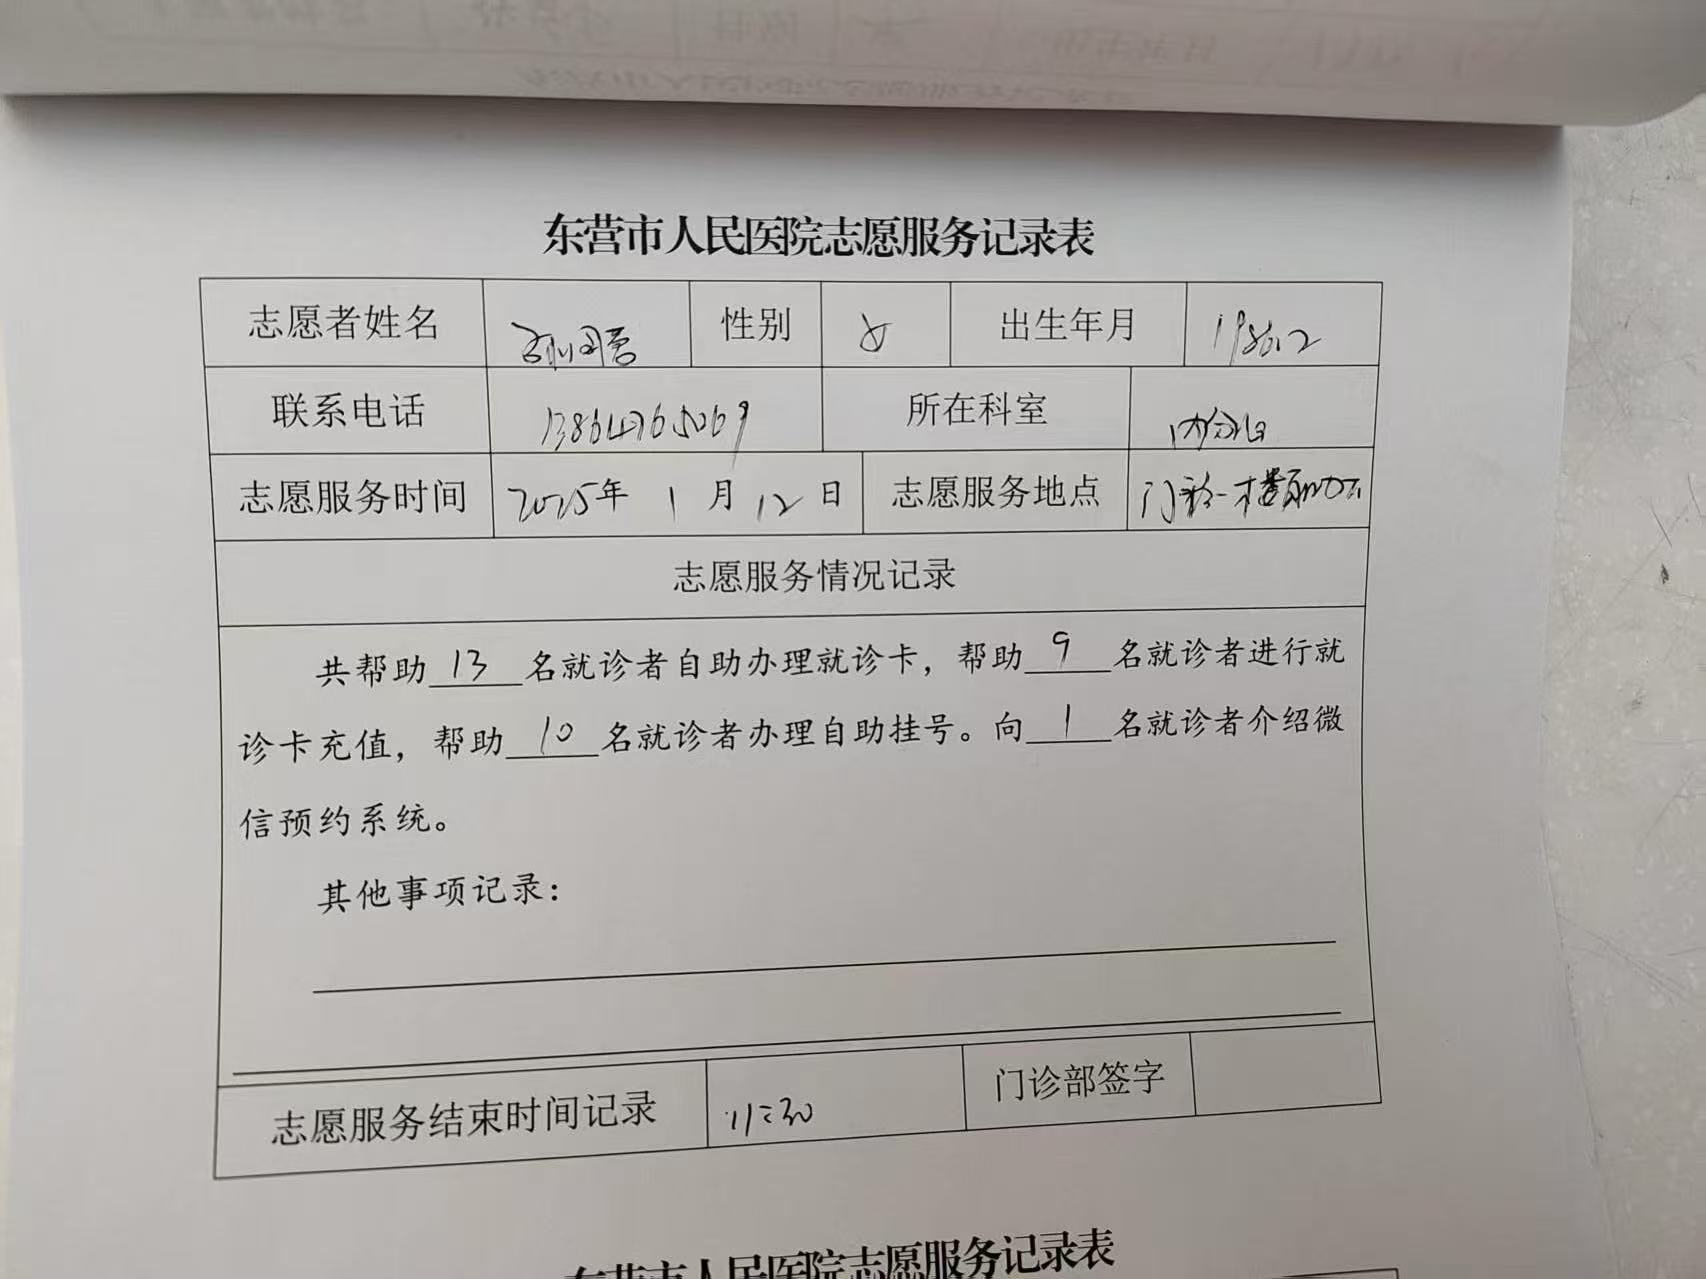 东营市人民医院志愿服务记录表
志愿者姓名 性别 女 出生年月 1986.12
联系电话 13864765069 所在科室 内分泌
志愿服务时间 2025年 1月 12日 志愿服务地点 门诊一楼
志愿服务情况记录
共帮助 13 名就诊者自助办理就诊卡，帮助 9 名就诊者进行就
诊卡充值，帮助 10 名就诊者办理自助挂号。向 1 名就诊者介绍微
信预约系统。
其他事项记录：
志愿服务结束时间记录 11:30 门诊部签字
东营市人民医院志愿服务记录表